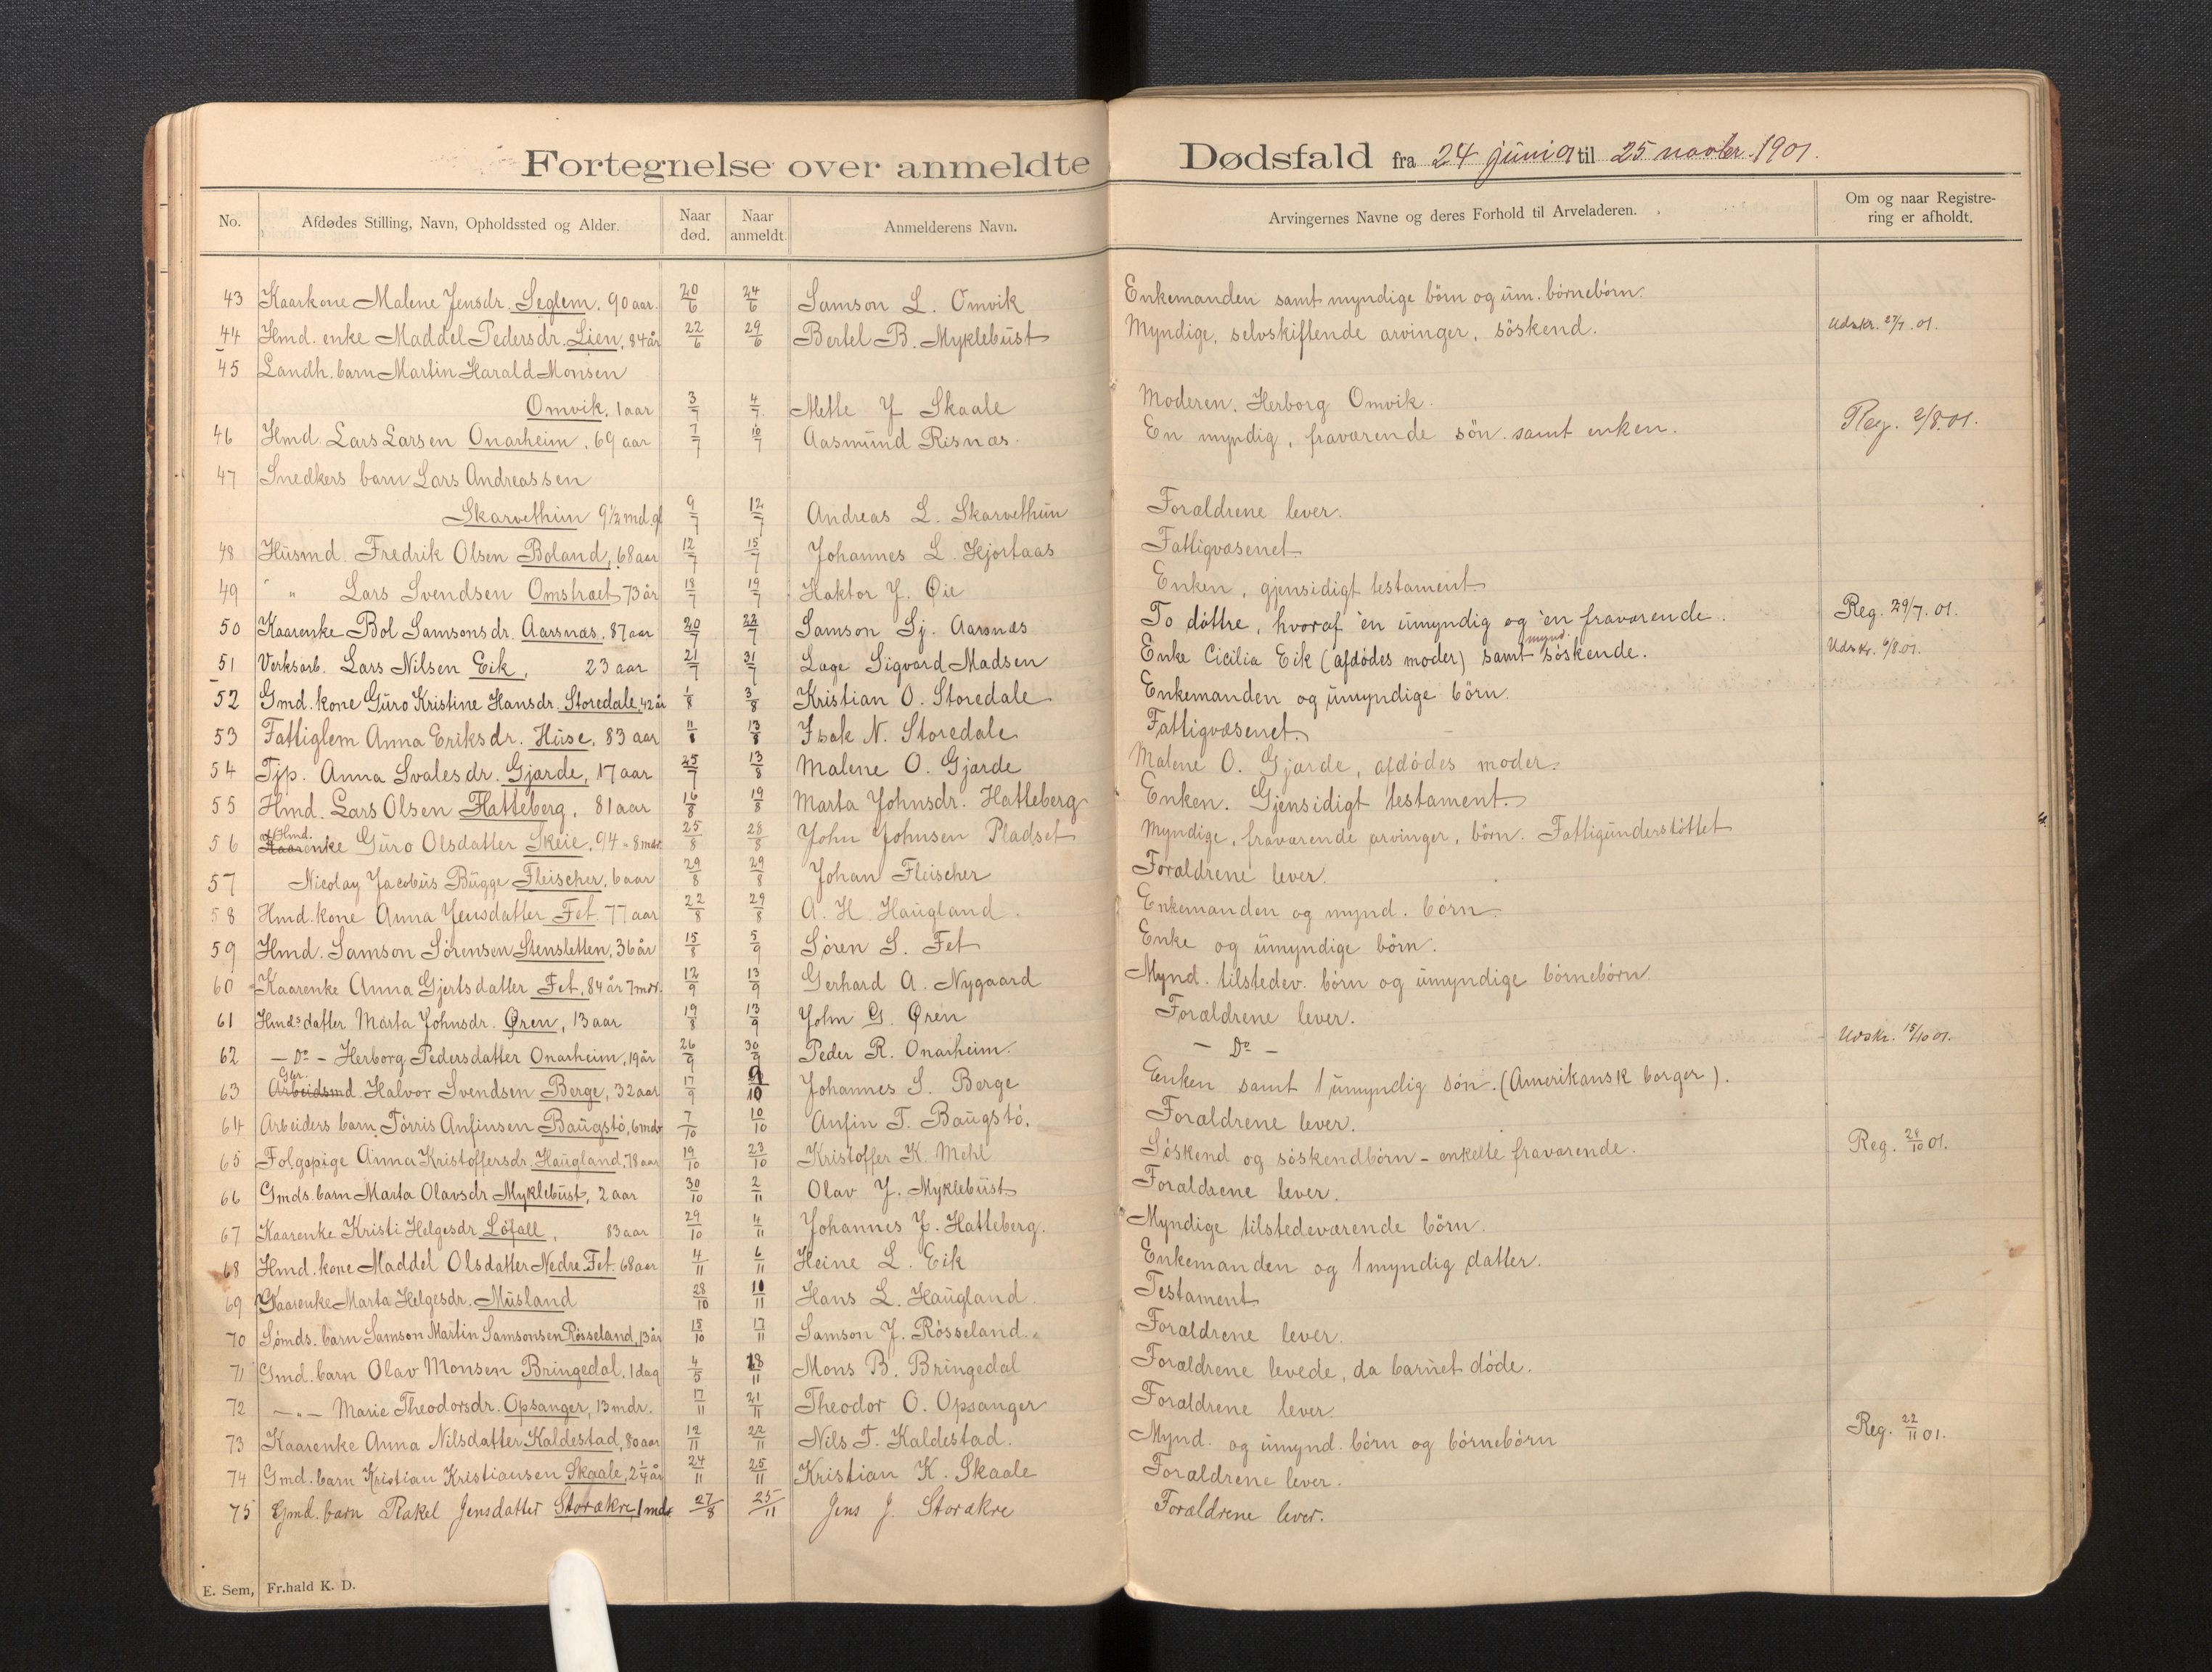 Fortegnelse over anmeldte Dødsfald fra 24 juni 01 til 25 novber. 1901.
No. Afdødes Stilling, Navn, Opholdssted og Alder. Naar død. Naar anmeldt. Anmelderens Navn. Arvingernes Navne og deres Forhold til Arveladeren. Om og naar Registrering er afholdt.
43 Kaarkone Malene Jensdr. Seglem, 90 aar. 20/6 24/6 Samson L. Omvik Enkemanden samt myndige börn og üm. börnebörn.
44 Hmd. enke Maddel Pedersdr. Lien, 84 år 22/6 29/6 Bertel B. Myklebüst Myndige, selvskiftende arvinger, söskend. Udskr. 27/7. 01.
45 Landh. barn Martin Harald Monsen
Omvik, 1 aar 3/7 4/7. Mette J Skaale Moderen, Herborg Omvik.
46 Hmd. Lars Larsen Onarheim, 69 aar 7/7 10/7 Aasmünd Risnæs. En myndig, fraværende sön samt enken. Reg. 2/8.01.
47 Snedkers barn Lars Andreassen
Skarvethün 9 1/2 md. gl 9/7 12/7 Andreas L. Skarvethün Forældrene lever.
48 Hüsmd. Fredrik Olsen Boland, 68 aar 12/7 15/7 Johannes L. Hjortaas Fattigvæsenet
49 " Lars Svendsen Omstræt 73 år 18/7 19/7 Haktor J. Øie Enken, gjensidigt testament
50 Kaarenke Bol Samsonsdr. Aarsnæs, 87 aar 20/7 22/7 Samson Sj. Aarsnæs To döttre, hvoraf én ümyndig og én fraværende. Reg. 29/7. 01.
51 Verksarb. Lars Nilsen Eik, 23 aar 21/7 31/7 Lage Sigvard Madsen Enke Cicilia Eik (afdödes moder) samt mynd. söskende. Udskr. 6/8 01.
52 Gmd. kone Güro Kristine Hansdr. Storedale, 42 år 1/8 3/8 Kristian O. Storedale Enkemanden og ümyndige börn.
53 Fattiglem Anna Eriksdr. Hüse, 83 aar 11/8 13/8 Isak N. Storedale Fattigvæsenet.
54 Tjp. Anna Svalesdr. Gjærde, 17 aar 25/7 13/8 Malene O. Gjærde Malene O. Gjærde, afdödes moder.
55 Hmd. Lars Olsen Hatteberg, 81 aar 16/8 19/8 Marta Johnsdr. Hatteberg Enken. Gjensidigt testament.
56 Hmd. Kaarenke Güro Olsdatter Skeie, 94 " 8 mdr. 25/8 28/8 John Johnsen Pladset Myndige, fraværende arvinger, börn. Fattigünderstöttet
57 Nicolay Jacobüs Bügge Fleischer, 6 aar 29/8 29/8 Johan Fleischer Forældrene lever.
58 Hmd. kone Anna Jensdatter Fet 77 aar 22/8 29/8 A. H. Haügland. Enkemanden og mynd. börn.
59 Hmd. Samson Sörensen Stensletten, 36 år 15/8 5/9 Sören S. Fet Enke og ümyndige börn.
60 Kaarenke Anna Gjertsdatter Fet, 84 år 7 mdr. 12/9 13/9 Gerhard A. Nygaard Mynd. tilstedev. börn og ümyndige börnebörn
61 Hmds datter Marta Johnsdr. Øren, 13 aar 19/8 13/9 John G. Øren Forældrene lever.
62 - Do - Herborg Pedersdatter Onarheim, 19 år 26/9 30/9 Peder R. Onarheim. - Do - Udskr. 15/10 01.
63 Gbr. Arbeidsmd. Halvor Svendsen Berge, 32 aar 17/9 9/10 Johannes S. Berge Enken samt 1 ümyndig sön. (Amerikansk borger).
64 Arbeiders barn Törris Anfinsen Baügstö, 6 mdr 7/10 10/10 Anfin T. Baügstö. Forældrene lever.
65 Folgspige Anna Kristoffersdr. Haügland, 78 aar 19/10 23/10 Kristoffer K. Mehl Söskend og söskendbörn - enkelte fraværende. Reg. 28/10 01.
66 Gmds. barn Marta Olavsdr Myklebüst, 2 aar 30/10 2/11 Olav J. Myklebüst Forældrene lever.
67 Kaarenke Kristi Helgesdr Löfall, 83 aar 29/10 4/11 Johannes J. Hatteberg. Myndige tilstedeværende börn.
68 Hmd. kone Maddel Olsdatter Nedre Fet. 68 aar 4/11 6/11 Heine L. Eik Enkemanden og 1 myndig datter.
69 Kaarenke Marta Helgesdr. Müsland 28/10 10/11 Hans L. Haügland. Testament
70 Sömds. barn Samson Martin Samsonsen Rösseland, 13 år 15/10 17/11 Samson J. Rösseland. Forældrene lever.
71 Gmd. barn Olav Monsen Bringedal, 1 dag 4/5 18/11 Mons B. Bringedal Forældrene levede, da barnet döde.
72 - " - Marie Theodorsdr. Opsanger, 13 mdr. 17/11 21/11 Theodor O. Opsanger Forældrene lever.
73 Kaarenke Anna Nilsdatter Kaldestad, 80 aar 12/11 22/11 Nils T. Kaldestad. Mynd. og ümynd. börn og börnebörn Reg. 22/11 01.
74 Gmd. barn Kristian Kristiansen Skaale, 2 1/4 år 24/11 25/11 Kristian K. Skaale Forældrene lever.
75 Gmd. barn Rakel Jensdatter Storækre, 1 mdr. 27/8 25/11 Jens J. Storækre Forældrene lever.
E. Sem, Fr.hald K. D.